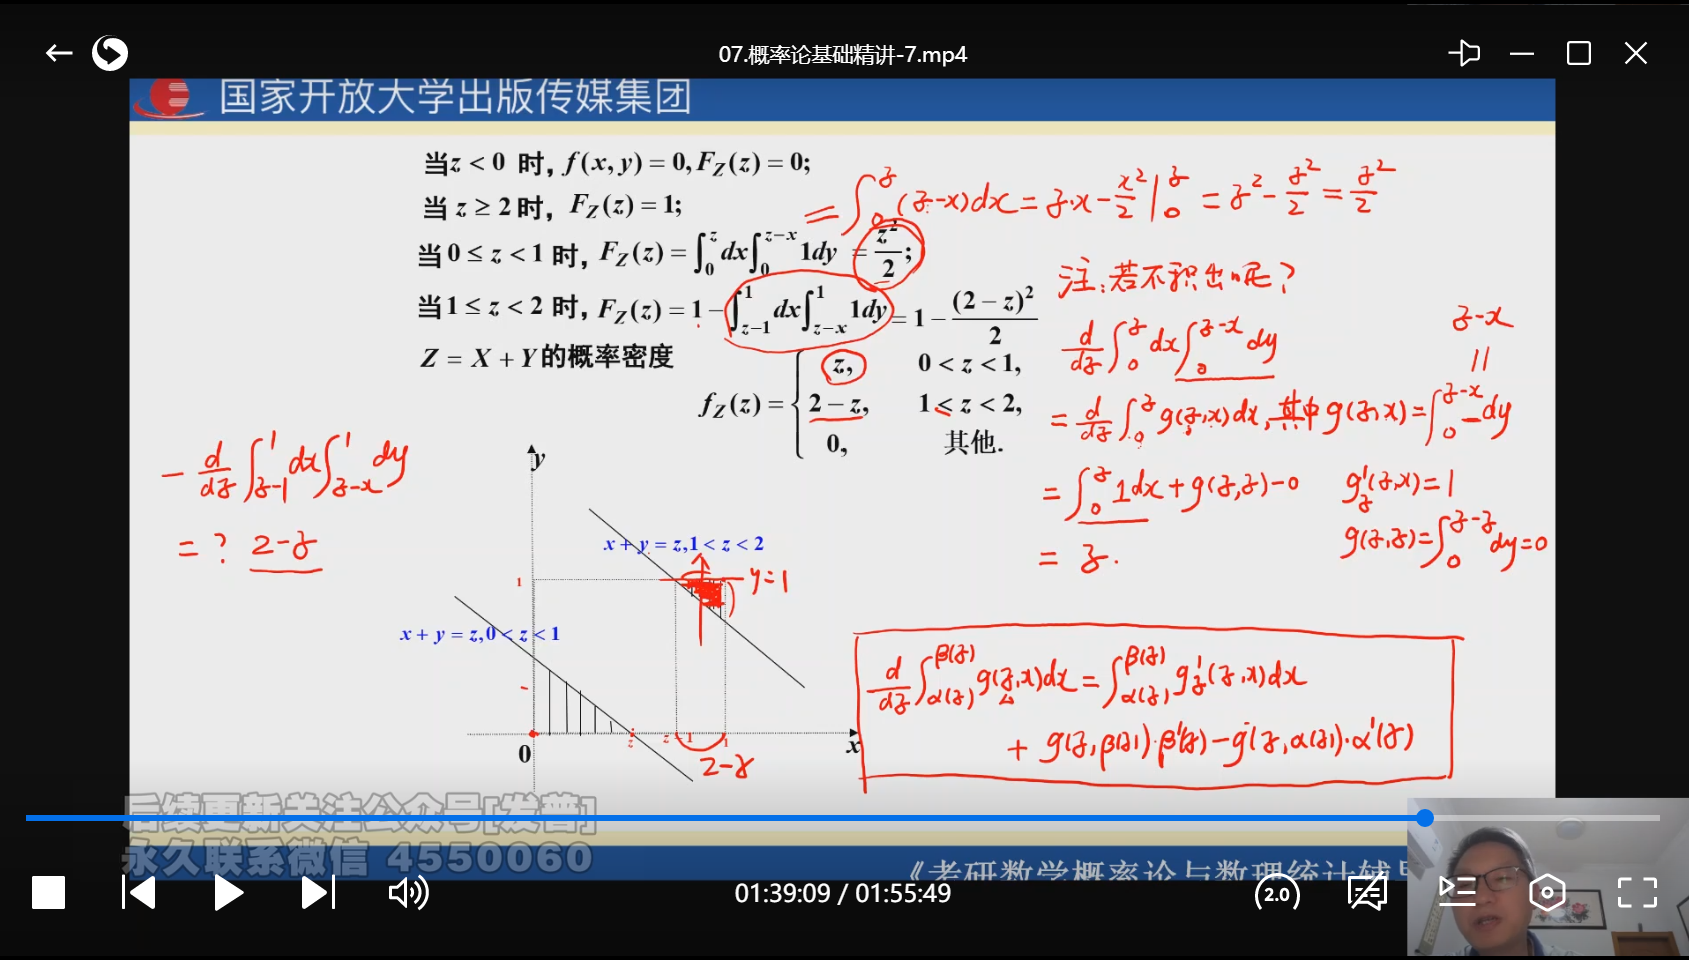 07.概率论基础精讲-7.mp4
国家开放大学出版传媒集团
当z < 0 时, f(x, y) = 0, F_Z(z) = 0;
当 z ≥ 2 时, F_Z(z) = 1;
= ∫_0^z (z-x)dx = z·x - x²/2 |_0^z = z² - z²/2 = z²/2
当 0 ≤ z < 1 时, F_Z(z) = ∫_0^z dx ∫_0^{z-x} 1dy = z²/2;
当 1 ≤ z < 2 时, F_Z(z) = 1 - ∫_{z-1}^1 dx ∫_{z-x}^1 1dy = 1 - (2 - z)²/2
Z = X + Y 的概率密度
f_Z(z) = { z, 0 < z < 1,
2 - z, 1 < z < 2,
0, 其他.
注:若不积出呢?
d/dz ∫_0^z dx ∫_0^{z-x} dy
z-x
||
= d/dz ∫_0^z g(z,x)dx, 其中 g(z,x) = ∫_0^{z-x} dy
= ∫_0^z 1dx + g(z,z) - 0
g'_z(z,x) = 1
g(z,z) = ∫_0^{z-z} dy = 0
= z.
- d/dz ∫_{z-1}^1 dx ∫_{z-x}^1 dy
= ? 2-z
y
x + y = z, 1 < z < 2
1
y=1
x + y = z, 0 < z < 1
0
z
z - 1
1
x
2-z
d/dz ∫_{α(z)}^{β(z)} g(z,x)dx = ∫_{α(z)}^{β(z)} g'_z(z,x)dx
+ g(z,β(z))·β'(z) - g(z,α(z))·α'(z)
后续更新关注公众号[发普]
永久联系微信 4550060
《考研数学概率论与数理统计辅
01:39:09 / 01:55:49
2.0